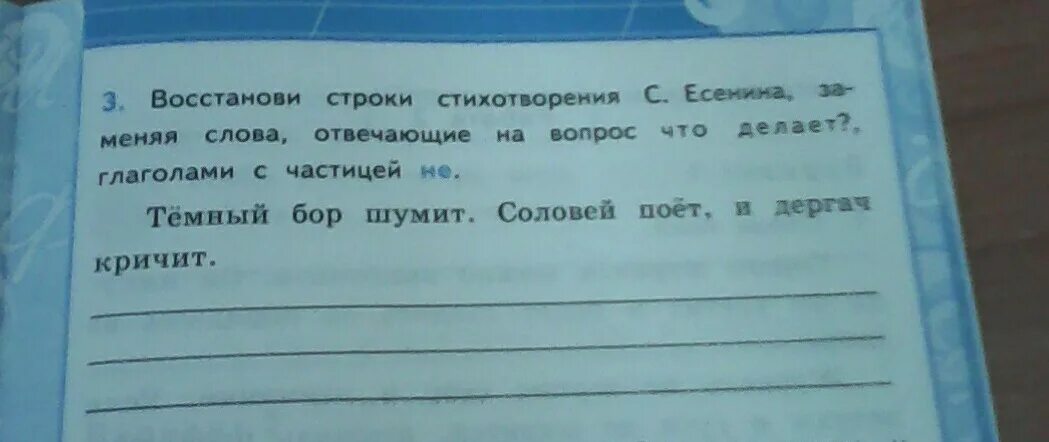 3. Восстанови строки стихотворения С. Есенина, за-
меняя слова, отвечающие на вопрос что делает?,
глаголами с частицей не.
Тёмный бор шумит. Соловей поёт, и дергач
кричит.